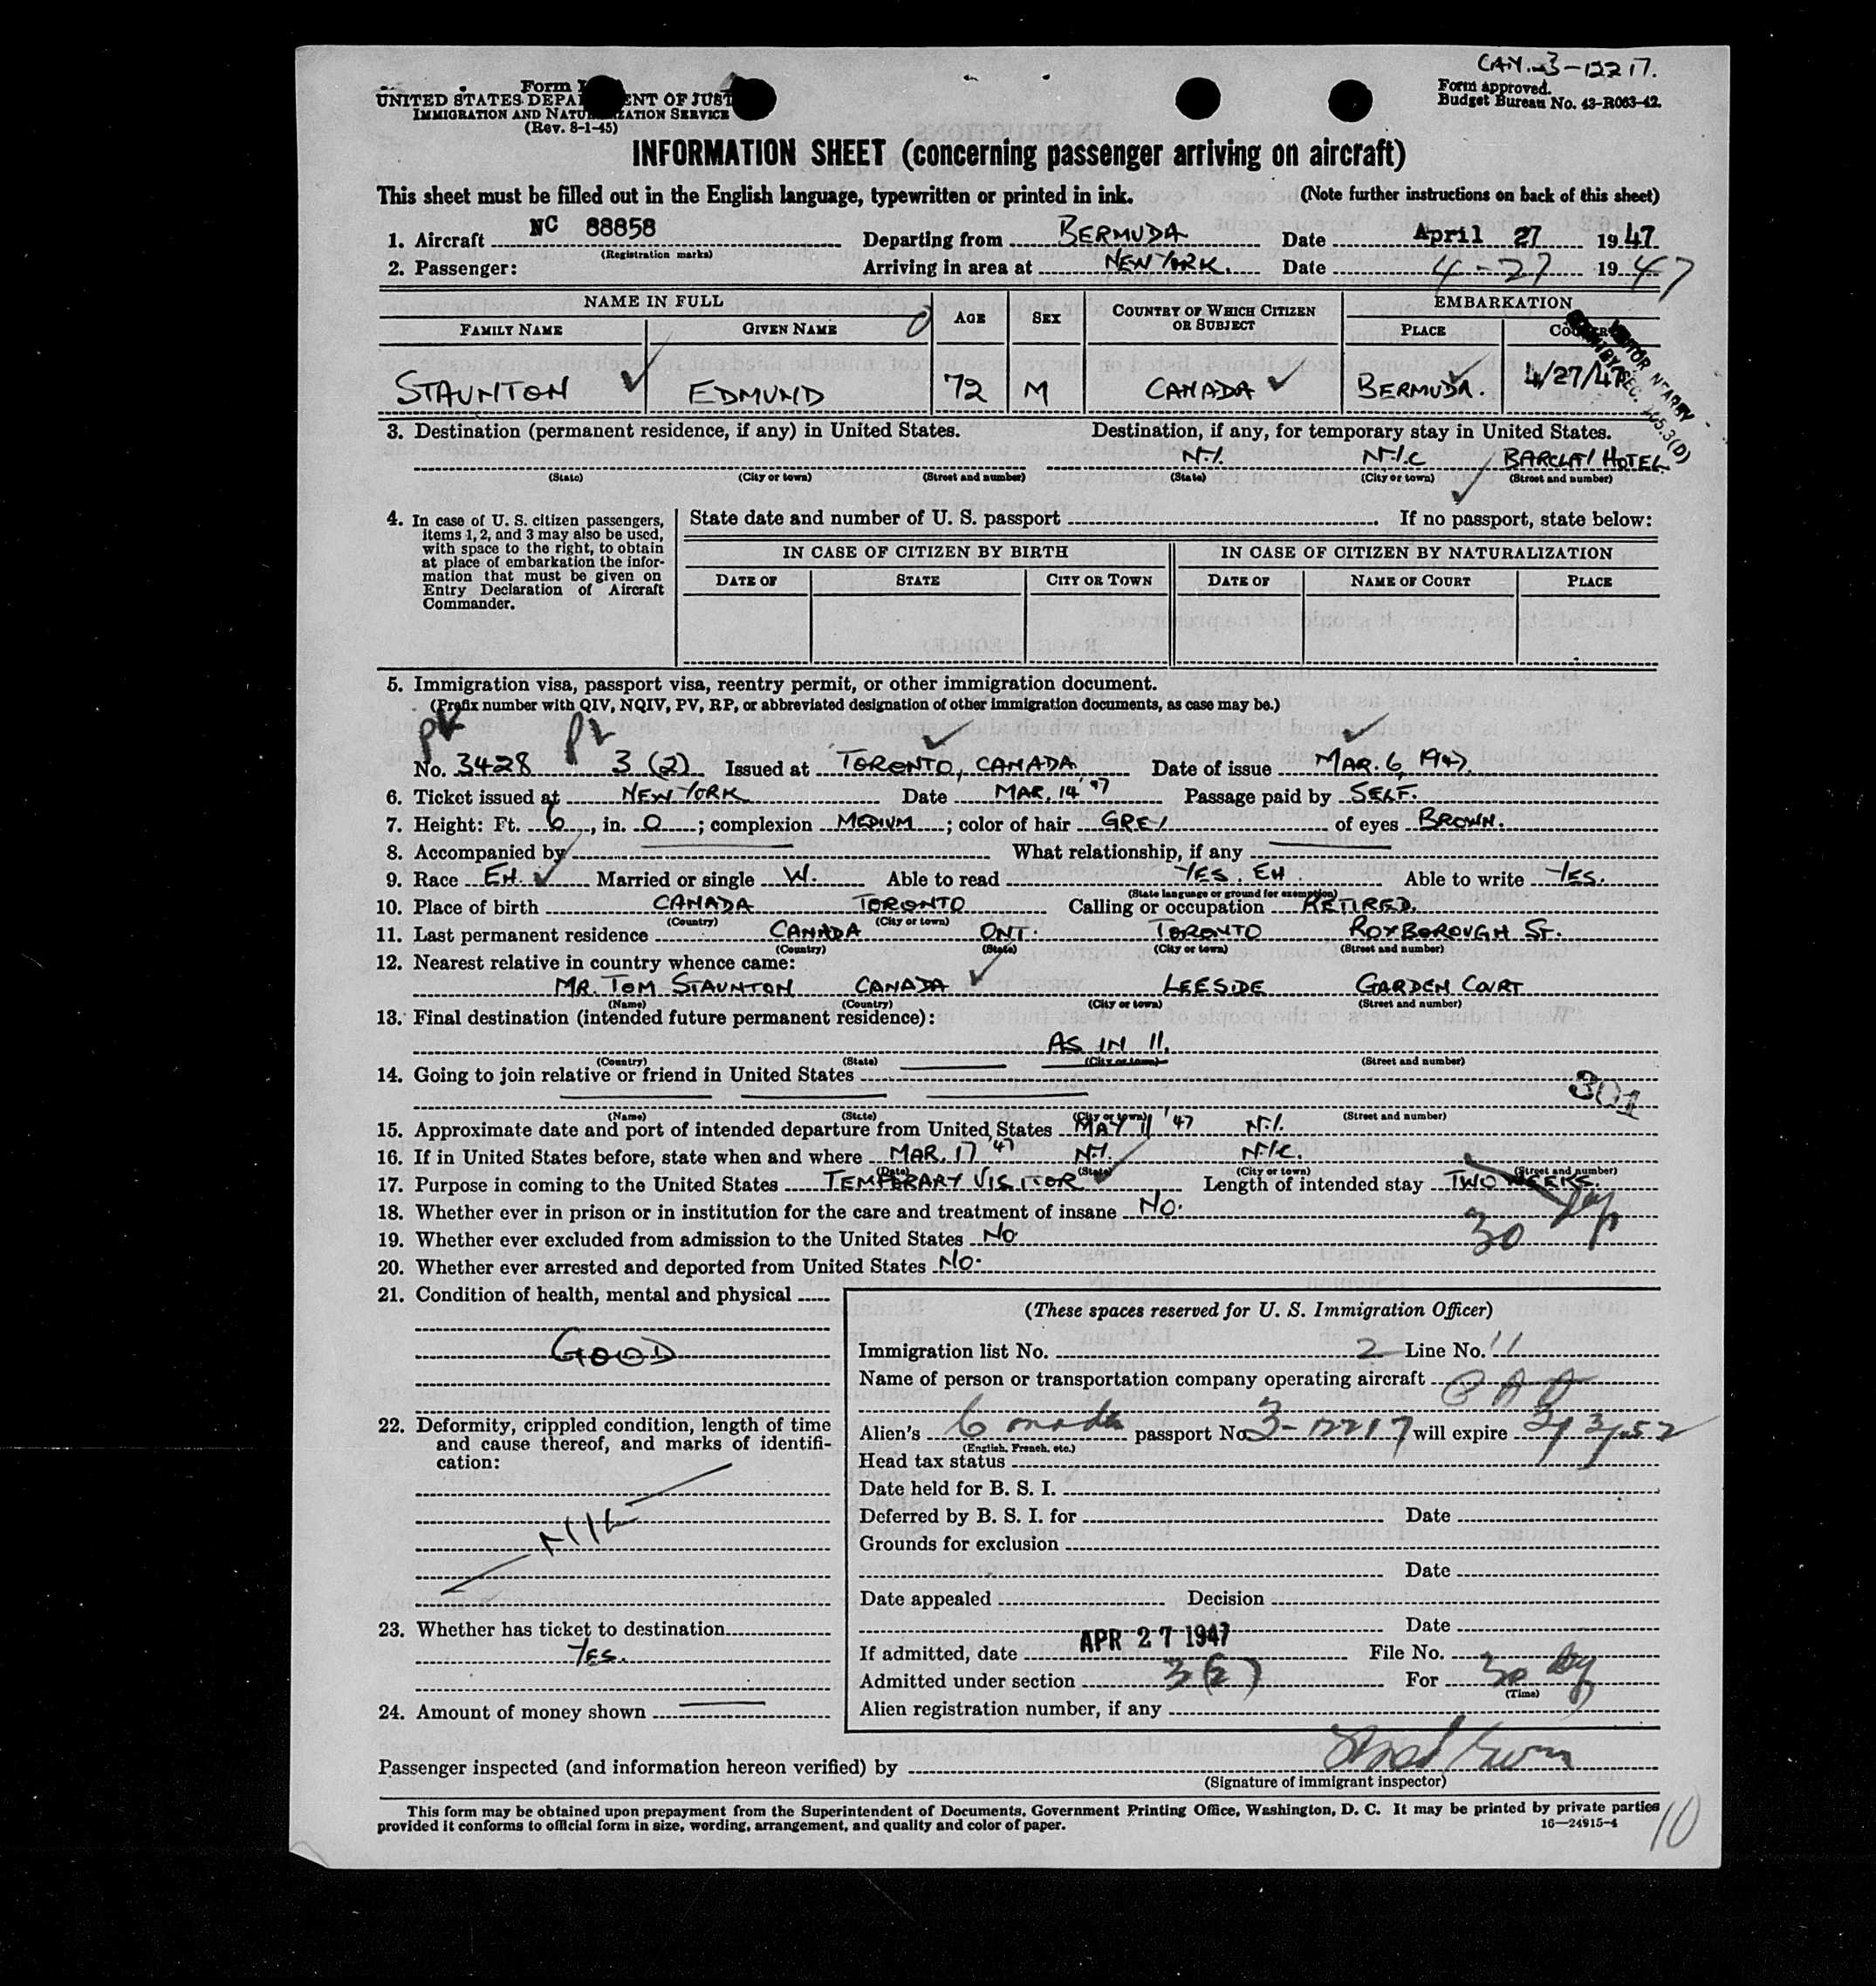 CAN. 3-12217.
Form
UNITED STATES DEPA ENT OF JUST
IMMIGRATION AND NATU ZATION SERVICE
(Rev. 8-1-45)
Form approved.
Budget Bureau No. 43-R063-42.
INFORMATION SHEET (concerning passenger arriving on aircraft)
This sheet must be filled out in the English language, typewritten or printed in ink. (Note further instructions on back of this sheet)
1. Aircraft NC 88858 Departing from BERMUDA Date April 27 1947
(Registration marks)
2. Passenger: Arriving in area at NEW YORK. Date 4-27 1947
NAME IN FULL AGE SEX COUNTRY OF WHICH CITIZEN OR SUBJECT EMBARKATION
FAMILY NAME GIVEN NAME PLACE
STAUNTON EDMUND 72 M CANADA BERMUDA. 4/27/47
3. Destination (permanent residence, if any) in United States. Destination, if any, for temporary stay in United States.
N.Y. N.Y.C BARCLAY HOTEL
(State) (City or town) (Street and number) (State) (City or town) (Street and number)
4. In case of U. S. citizen passengers, items 1, 2, and 3 may also be used, with space to the right, to obtain at place of embarkation the information that must be given on Entry Declaration of Aircraft Commander.
State date and number of U. S. passport . If no passport, state below:
IN CASE OF CITIZEN BY BIRTH IN CASE OF CITIZEN BY NATURALIZATION
DATE OF STATE CITY OR TOWN DATE OF NAME OF COURT PLACE
5. Immigration visa, passport visa, reentry permit, or other immigration document.
(Prefix number with QIV, NQIV, PV, RP, or abbreviated designation of other immigration documents, as case may be.)
PV PV
No. 3428 3 (2) Issued at TORONTO, CANADA Date of issue MAR. 6, 1947.
6. Ticket issued at NEW YORK Date MAR. 14 '47 Passage paid by SELF.
7. Height: Ft. 6, in. 0; complexion MEDIUM; color of hair GREY of eyes BROWN.
8. Accompanied by What relationship, if any
9. Race EH. Married or single W. Able to read YES. EH. Able to write YES.
(State language or ground for exemption)
10. Place of birth CANADA TORONTO Calling or occupation RETIRED.
(Country) (City or town)
11. Last permanent residence CANADA ONT. TORONTO ROXBOROUGH ST.
(Country) (State) (City or town) (Street and number)
12. Nearest relative in country whence came:
MR. TOM STAUNTON CANADA LEESIDE GARDEN COURT
(Name) (Country) (City or town) (Street and number)
13. Final destination (intended future permanent residence):
AS IN 11.
(Country) (State) (City or town) (Street and number)
14. Going to join relative or friend in United States
301
(Name) (State) (City or town) (Street and number)
15. Approximate date and port of intended departure from United States MAY 11 '47 N.Y.
16. If in United States before, state when and where MAR. 17 '47 N.Y. N.Y.C.
(Date) (State) (City or town) (Street and number)
17. Purpose in coming to the United States TEMPERARY VISITOR Length of intended stay TWO WEEKS.
18. Whether ever in prison or in institution for the care and treatment of insane NO. 30
19. Whether ever excluded from admission to the United States NO
20. Whether ever arrested and deported from United States NO.
21. Condition of health, mental and physical
GOOD
22. Deformity, crippled condition, length of time and cause thereof, and marks of identification:
NIL
23. Whether has ticket to destination
YES.
24. Amount of money shown
(These spaces reserved for U. S. Immigration Officer)
Immigration list No. 2 Line No. 11
Name of person or transportation company operating aircraft
Alien's Canada passport No. 3-12217 will expire 3/3/52
(English, French, etc.)
Head tax status
Date held for B. S. I.
Deferred by B. S. I. for Date
Grounds for exclusion
Date
Date appealed Decision
Date
If admitted, date APR 27 1947 File No.
Admitted under section 3(2) For 30
(Time)
Alien registration number, if any
Passenger inspected (and information hereon verified) by
(Signature of immigrant inspector)
This form may be obtained upon prepayment from the Superintendent of Documents, Government Printing Office, Washington, D. C. It may be printed by private parties
provided it conforms to official form in size, wording, arrangement, and quality and color of paper. 16—24915-4
10